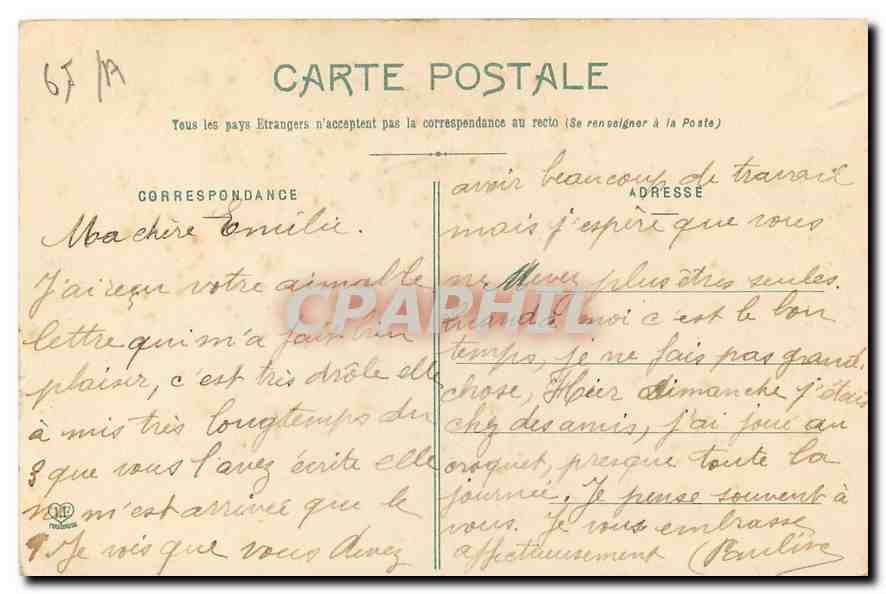 67/17
CARTE POSTALE
Tous les pays Etrangers n'acceptent pas la correspondance au recto (Se renseigner à la Poste)
CORRESPONDANCE
Ma chère Emilie.
J'ai reçu votre aimable
lettre qui m'a fait bien
plaisir, c'est très drôle elle
à mis très longtemps du
3 que vous l'avez écrite elle
m'est arrivée que le
9. Je vois que vous devez
ADRESSE
avoir beaucoup de travail
mais j'espère que vous
ne devez plus êtres seules.
Quand à moi c'est le bon
temps, je ne fais pas grand
chose, Hier dimanche j'étais
chez des amis, j'ai joué au
croquet, presque toute la
journée. Je pense souvent à
vous. Je vous embrasse
affectueusement
CPAPHIL